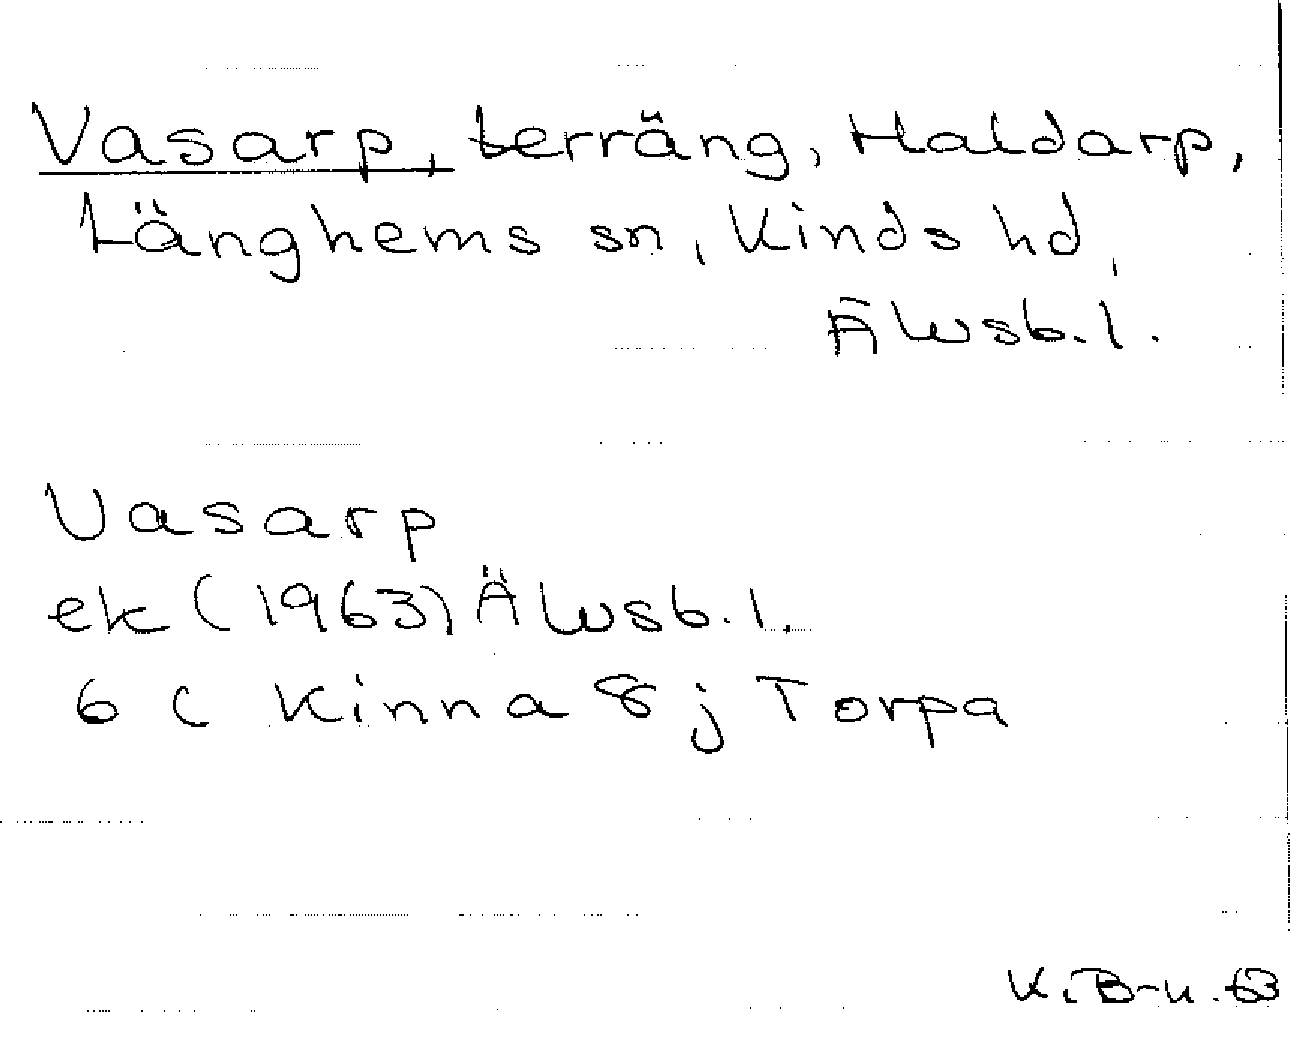 Vasarp, terräng, Haldarp,
Länghems sn, Kinds hd,
Älvsb. l.
Vasarp
ek (1963) Älvsb. l.
6 C Kinna 8 j Torpa
K. B-n. 63